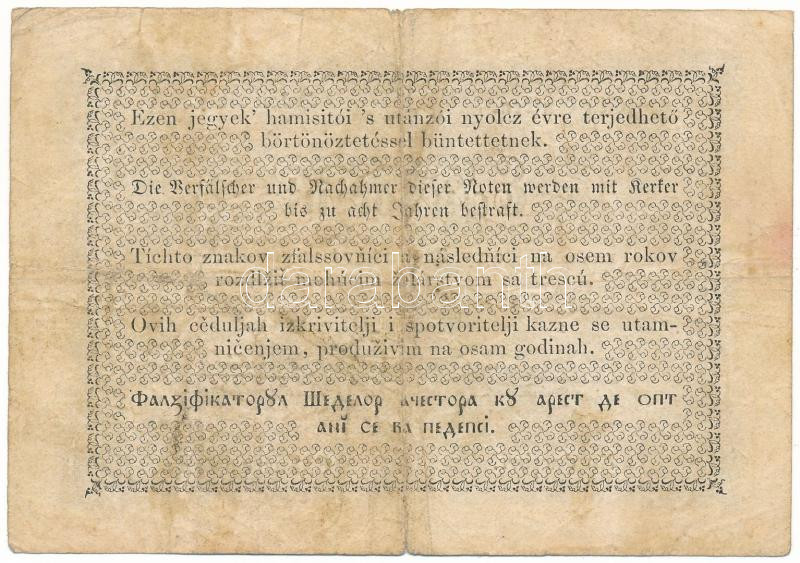 Ezen jegyek' hamisitói 's utánzói nyolcz évre terjedhető
börtönöztetéssel büntettetnek.
Die Verfälscher und Nachahmer dieser Noten werden mit Kerker
bis zu acht Jahren bestraft.
Tíchto znakov zfalssovňíci a následňíci na osem rokov
rozdlžiť mohúcim žalárstvom sa trescú.
darabanth
Ovih cěduljah izkrivitelji i spotvoritelji kazne se utam-
ničenjem, produživim na osam godinah.
Фалꙋіфікаторꙋл Шеделор ачестора кꙋ арест де опт
анĭ се ва педепсі.